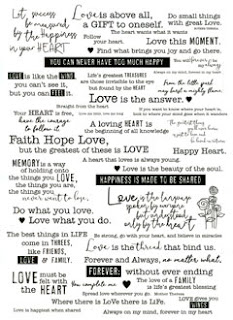 Let success be measured by the happiness in your HEART
Love is above all, a GIFT to oneself.
Do small things with great Love.
The heart wants what it wants
Follow your heart.
Love this MOMENT.
Find what brings you joy and go there.
YOU CAN NEVER HAVE TOO MUCH HAPPY
LOVE is like the WIND, you can't see it, but you can FEEL it.
Life's greatest TREASURES are invisible to the eye but found by the HEART
Love is the answer.
Straight from the heart
Your HEART is free, have the courage to follow it
A loving HEART is the beginning of all knowledge
Love is putting someone else's needs before yours
Faith Hope Love,
but the greatest of these is LOVE
Happy Heart.
MEMORY is a way of holding onto the things you LOVE, the things you are, the things you never want to lose.
A heart that loves is always young.
Love is the beauty of the soul.
HAPPINESS IS MADE TO BE SHARED
Love is the language
only by the heart
Do what you love.
Love what you do.
The best things in LIFE come in THREES, like FRIENDS, LOVE & FAMILY.
Love is the thread that bind us.
Forever and Always, no matter what.
LOVE must be felt with the HEART
FOREVER: without ever ending
You complete me
The love of a FAMILY is life's greatest blessing
Spread love
Where there is LoVe there is LiFe.
LOVE gives you WINGS
Love is happiness when shared
Always on my mind, forever in my heart